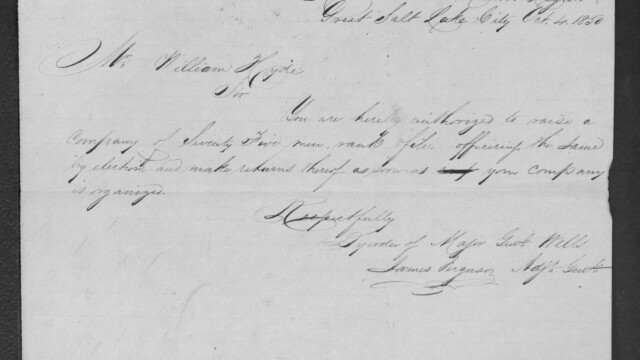 Great Salt Lake City, Oct. 4. 1850
Mr William Hyde
Sir
You are hereby authorized to raise a
company of Seventy Five men, rank & file officering the same
by election, and make returns thereof as soon as your company
is organized.
Respectfully
By order of Major Genl. Wells
James Ferguson Adjt. Genl.